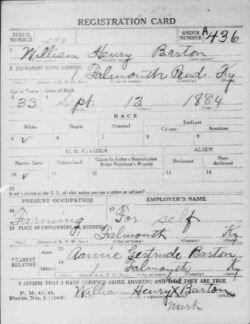 REGISTRATION CARD
SERIAL NUMBER
ORDER NUMBER A 436
William Henry Barton
PERMANENT HOME ADDRESS
1 Falmouth Pend. Ky
Age in Years
Date of Birth
33 Sept. 13 1884
RACE
White
Negro
Oriental
Indian
Citizen
U. S. CITIZEN
ALIEN
Native Born
Naturalized
Citizen by Father's Naturalization Before Registrant's Majority
Declarant
Non-declarant
If not a citizen of the U. S., of what nation are you a citizen or subject?
PRESENT OCCUPATION
EMPLOYER'S NAME
Farming For self
PLACE OF EMPLOYMENT OR BUSINESS
Falmouth Ky
NEAREST RELATIVE
Gertrude Barton
Falmouth Ky
I AFFIRM THAT I HAVE VERIFIED ABOVE ANSWERS AND THAT THEY ARE TRUE
P. M. G. O.
Form No. 1
William Henry X Barton
Mark